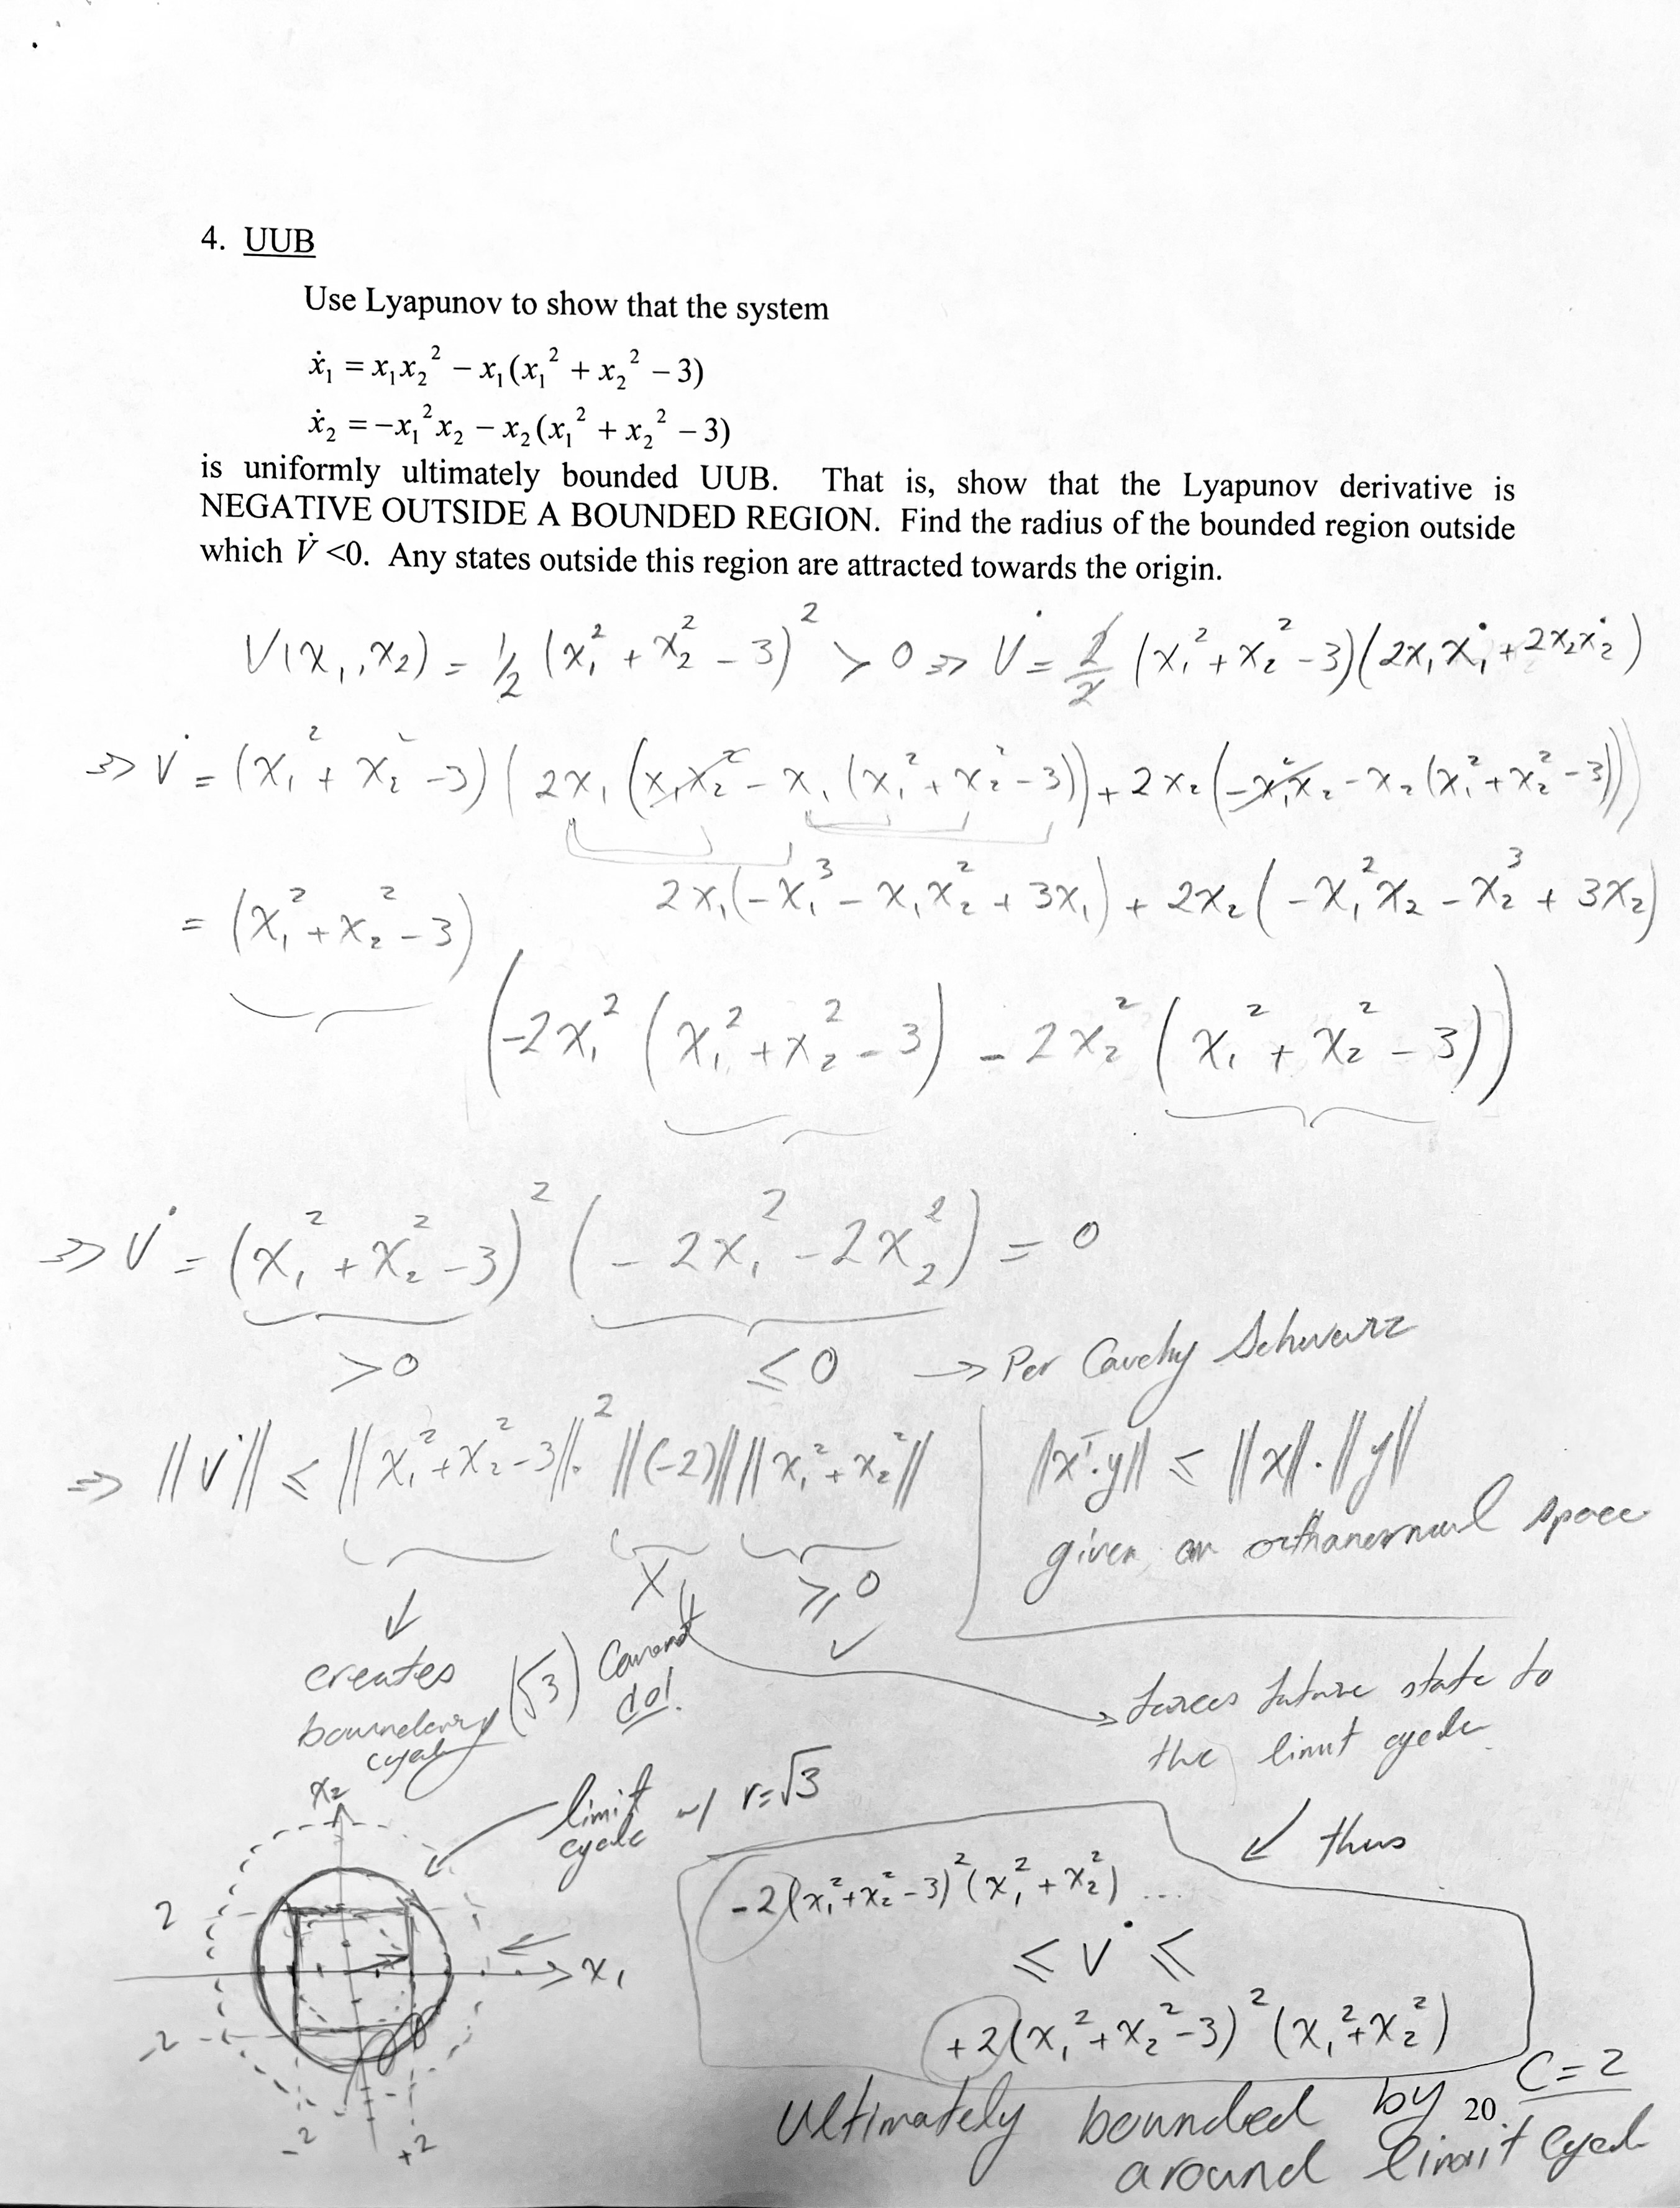 4. UUB
Use Lyapunov to show that the system
ẋ₁ = x₁x₂² − x₁(x₁² + x₂² − 3)
ẋ₂ = −x₁²x₂ − x₂(x₁² + x₂² − 3)
is uniformly ultimately bounded UUB. That is, show that the Lyapunov derivative is
NEGATIVE OUTSIDE A BOUNDED REGION. Find the radius of the bounded region outside
which V̇ <0. Any states outside this region are attracted towards the origin.
V(x₁,x₂) = ½ (x₁² + x₂² − 3)² > 0 ⇒ V̇ = 2/2 (x₁² + x₂² − 3)(2x₁ẋ₁ + 2x₂ẋ₂)
⇒ V̇ = (x₁² + x₂² − 3)(2x₁(x₁x₂² − x₁(x₁² + x₂² − 3)) + 2x₂(−x₁²x₂ − x₂(x₁² + x₂² − 3)))
= (x₁² + x₂² − 3) 2x₁(−x₁³ − x₁x₂² + 3x₁) + 2x₂(−x₁²x₂ − x₂³ + 3x₂)
(−2x₁² (x₁² + x₂² − 3) − 2x₂² (x₁² + x₂² − 3))
⇒ V̇ = (x₁² + x₂² − 3)² (−2x₁² − 2x₂²) = 0
>0 ≤0 → Per Cauchy Schwarz
⇒ ||V̇|| ≤ ||x₁² + x₂² − 3||² · ||(−2)|| ||x₁² + x₂²||
||xᵀ·y|| ≤ ||x||·||y||
given an orthanormal space
X ≥0
↓ ✓
creates
boundary (√3)
Cannot
do!
forces future state to
the limit cycle
limit
cycle w/ r=√3
x₂
x₁
2
-2
-2
+2
thus
−2(x₁² + x₂² − 3)² (x₁² + x₂²) ...
≤ V̇ ≤
+2(x₁² + x₂² − 3)² (x₁² + x₂²)
Ultimately bounded by C=2
around limit cycle
20